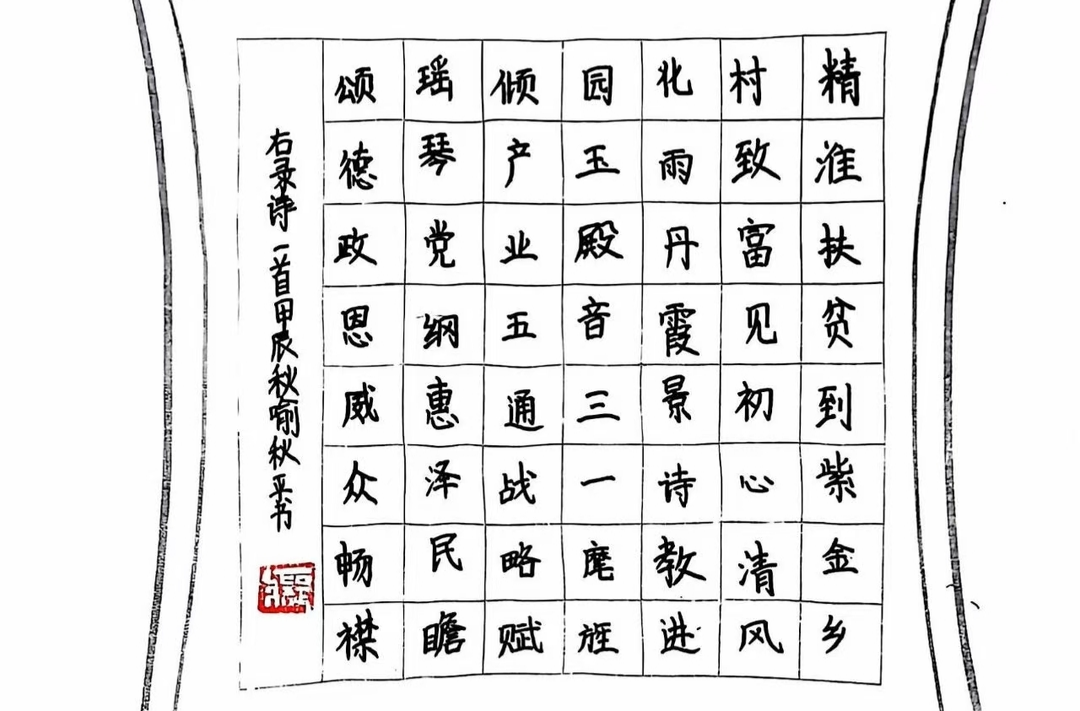 精淮扶贫到紫金乡
村致富见初心清风
化雨丹霞景诗教进
园玉殿音三一麾旌
倾产业五通战略赋
瑶琴党纲惠泽民瞻
颂德政恩威众畅襟
右录诗一首甲辰秋喻秋平书